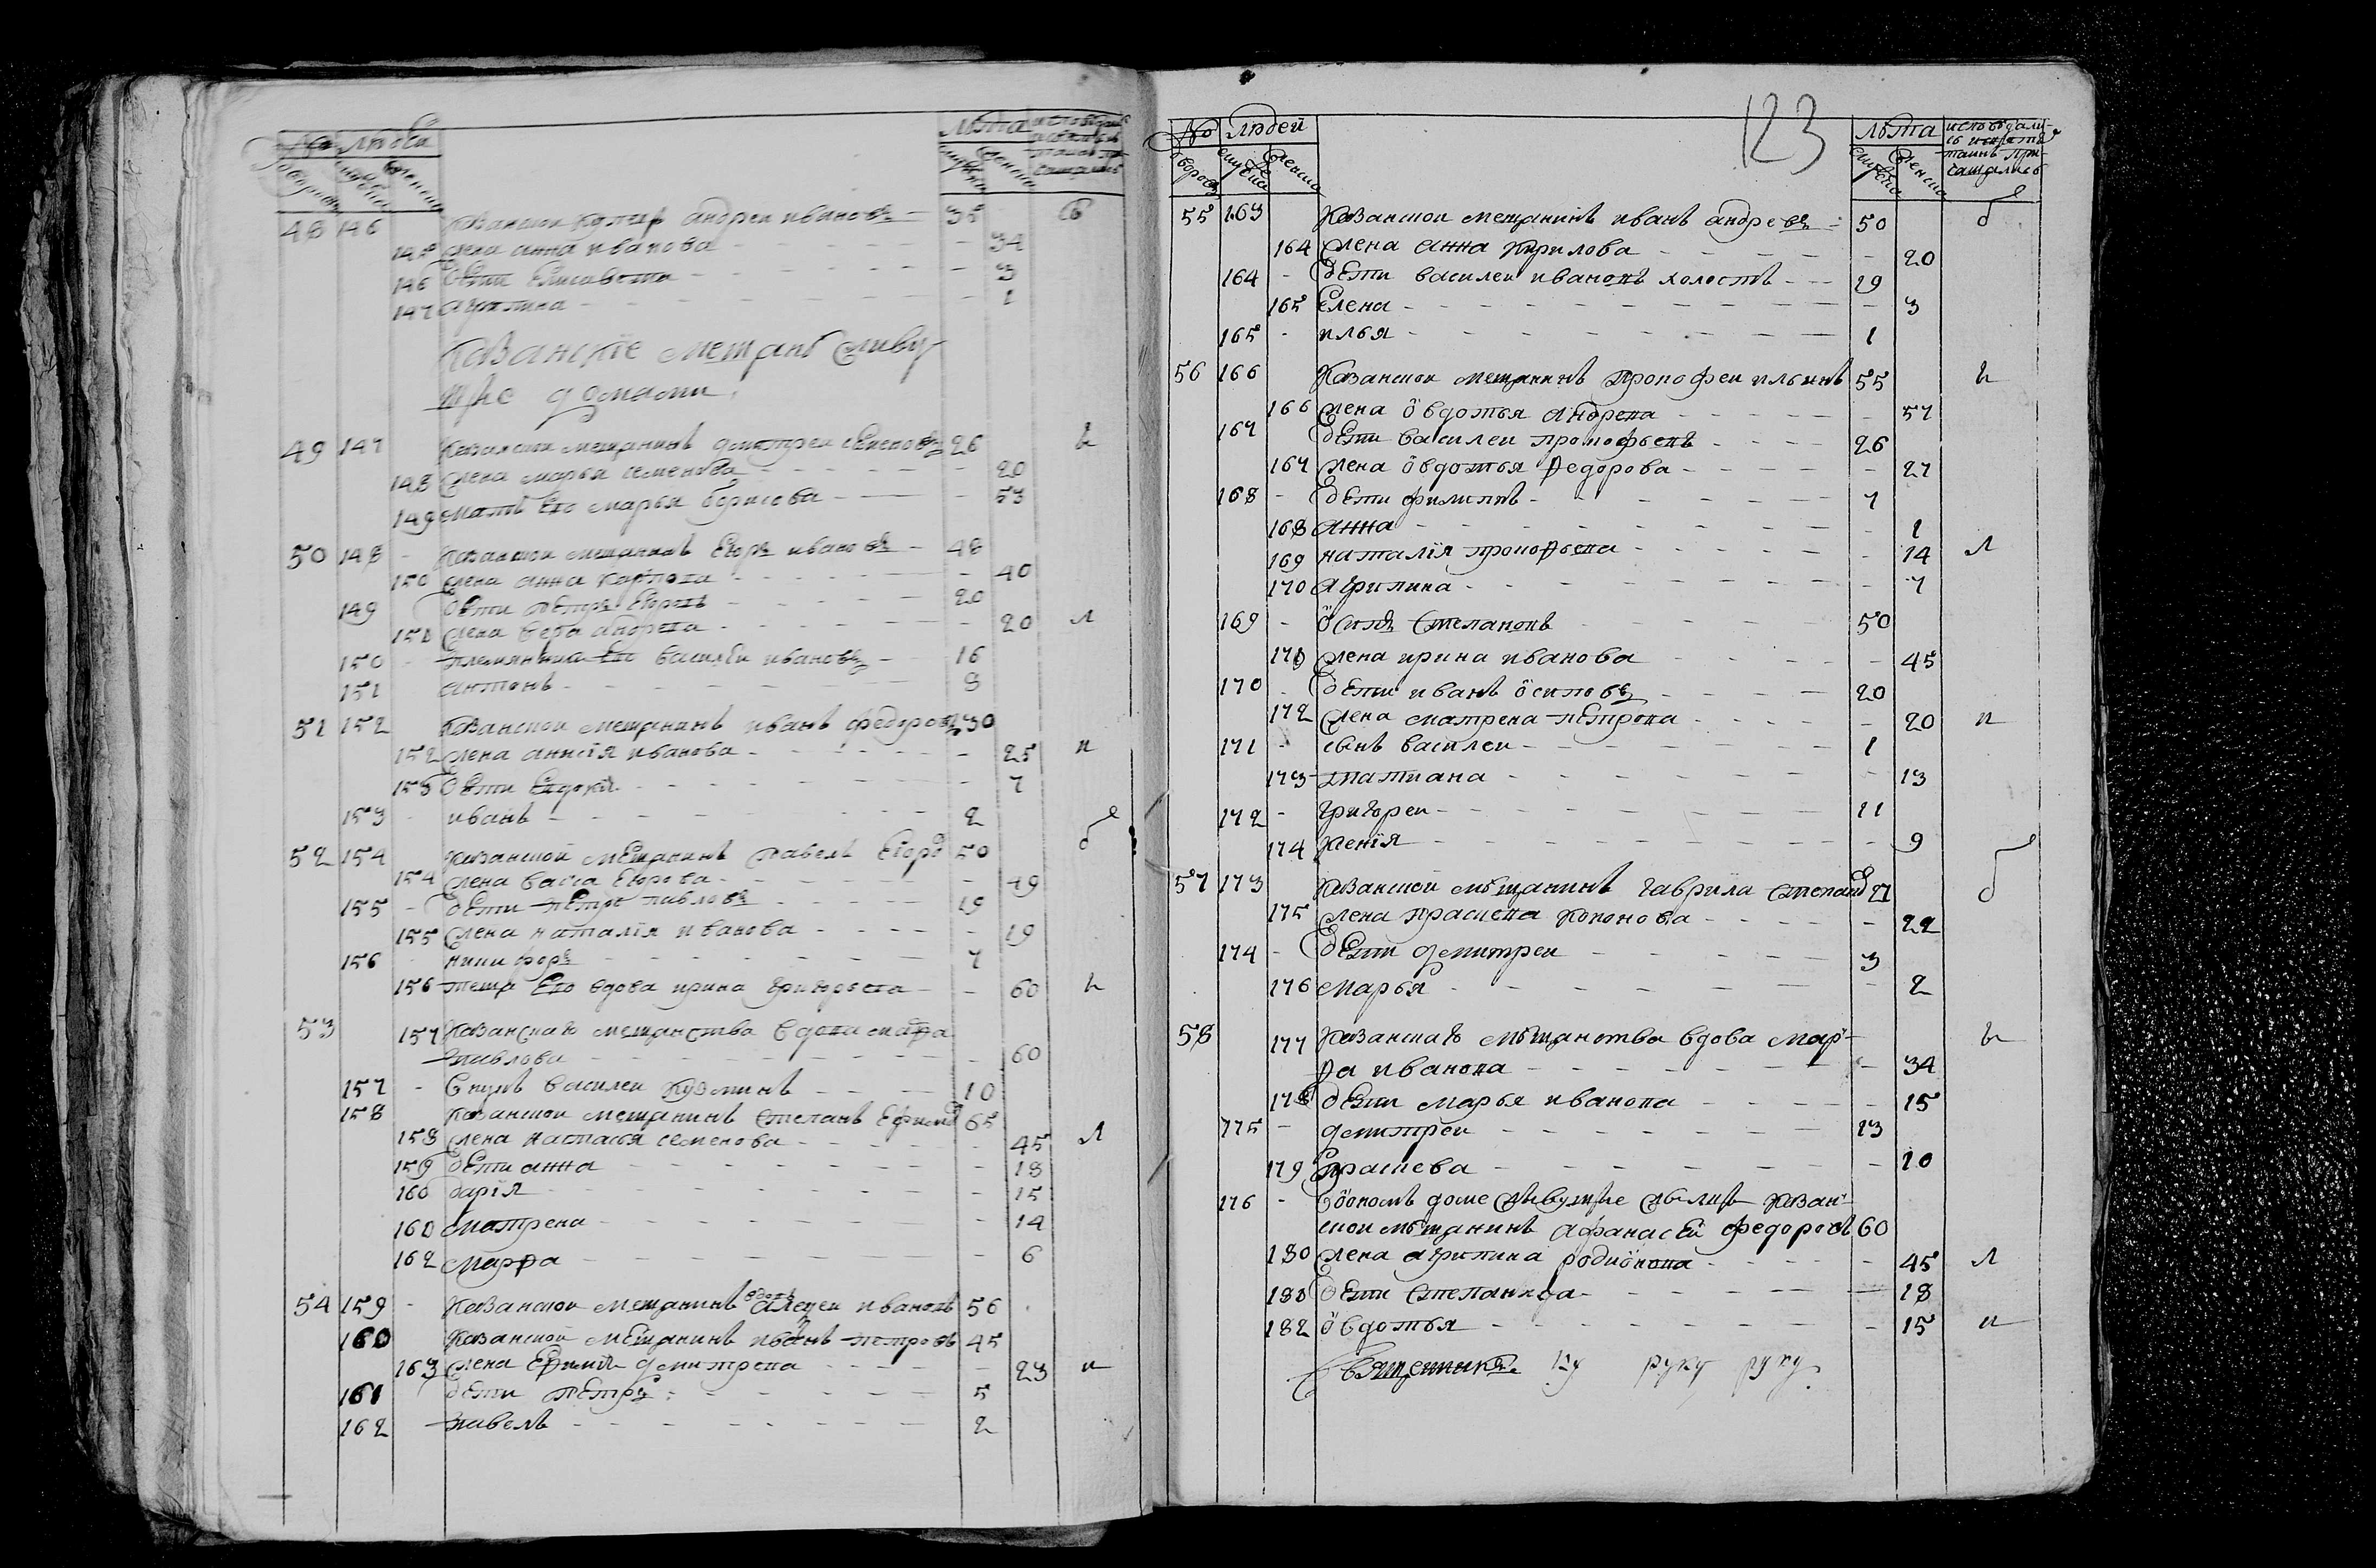 № людей лѣта
48 146 Казанской андреи ивановъ 35
145 жена анна иванова 34
146 дети Елисавета 3
147 акулина 1
Казанские мещанъ живу
щие домами
49 147 Казанской мещанинъ дмитреи 26
148 жена марья семенова 20
149 мать Его марья борисова 53
50 148 Казанской мещанинъ Егоръ ивановъ 48
150 жена анна карпова 40
149 дети петръ Егоровъ 20
151 жена вера андреева 20 л
150 племянники Его василеи ивановъ 16
151 антонъ 8
51 152 Казанской мещанинъ иванъ федоровъ 30
152 жена анисїя иванова 25 и
153 дети Евдокія 7
153 иванъ 2
52 154 Казанской мещанинъ павелъ Егоро 50
154 жена васса Егорова 49
155 дети петръ павловъ 19
155 жена наталїя иванова 19
156 никифоръ 7
156 теща Его вдова ирина григорьева 60
53 157 Казанскаго мещанства вдова марѳа
павлова 60
157 внукъ василеи кузминъ 10
158 Казанской мещанинъ степанъ Ефимо 65
158 жена настасья семенова 45 л
159 дети анна 18
160 дарїя 15
160 матрена 14
162 марѳа 6
54 159 Казанской мещанинъ вдовъ алеѯеи ивановъ 56
160 Казанской мещанинъ иванъ петровъ 45
163 жена Ефимїя дмитрева 23 и
161 дети петръ 5
162 павелъ 2
123
№ людей лѣта исповѣдали
дворовъ мужеска женска мужеска женска
55 163 Казанской мещанинъ иванъ андреевъ 50
164 жена анна кирилова 20
164 дети василеи ивановъ холостъ 29
165 Елена 3
165 илья 1
56 166 Казанской мещанинъ прокофеи ильинъ 55
166 жена овдотья андреева 57
167 дети василеи прокофьевъ 26
167 жена овдотья ѳедорова 27
168 дети филиппъ 7
168 анна 1
169 наталїя прокоѳьева 14 л
170 агрипина 7
169 осипъ степановъ 50
170 жена ирина иванова 45
170 дети иванъ осиповъ 20
172 жена матрена петрова 20 и
171 сынъ василеи 1
173 татиана 13
172 григореи 11
174 ѯенїя 9
57 173 Казанской мѣщанинъ гаврила степано 27
175 жена прасковя кононова 22
174 дети дмитреи 3
176 марья 2
58 177 Казанскаго мѣщанства вдова мар-
ѳа иванова 34
178 дети марья иванова 15
175 дмитреи 13
179 прасковя 10
176 в ономъ доме живущие Казан-
ской мѣщанинъ афанасеи федоровъ 60
180 жена агрипина родионова 45 л
181 дети степанида 18
182 овдотья 15 и
Священникъ ку руку руку